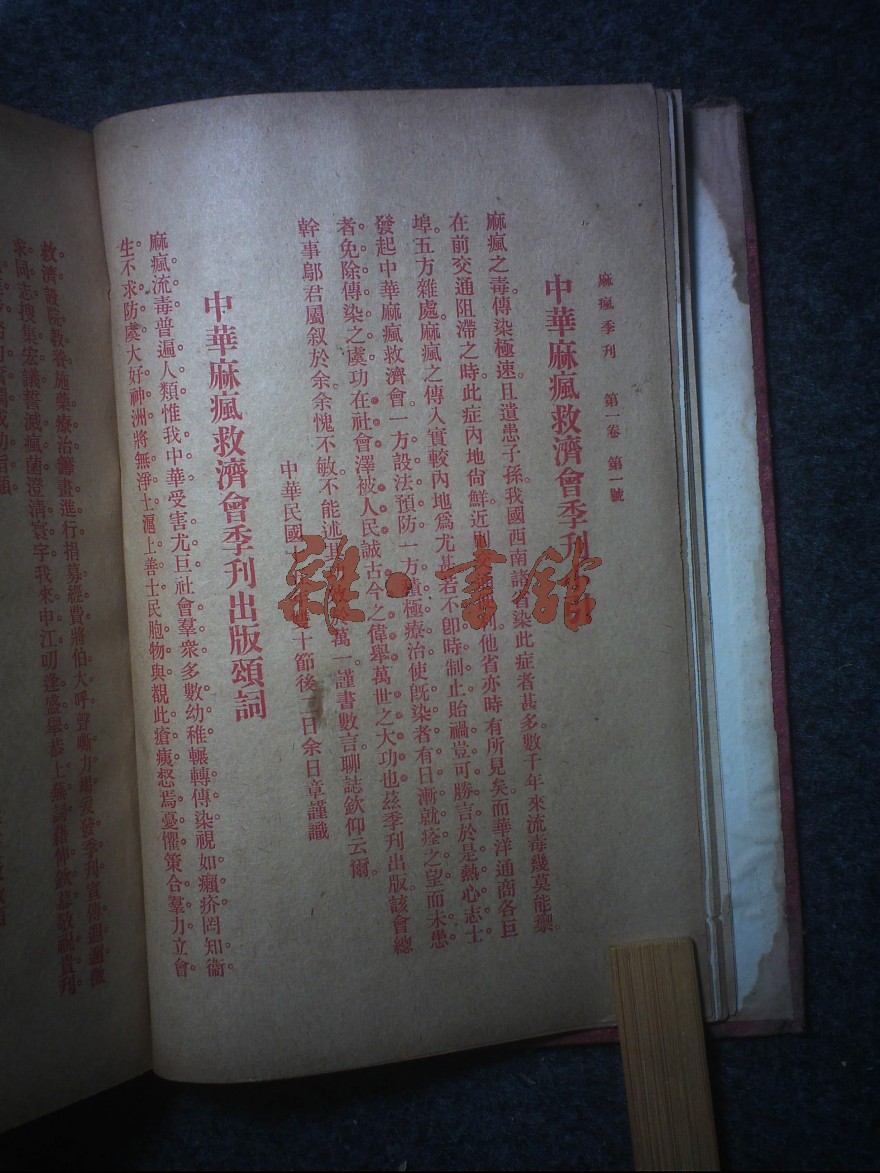 麻瘋季刊 第一卷 第一號
中華麻瘋救濟會季刊
麻瘋之毒。傳染極速。且遺患子孫。我國西南諸省。染此症者甚多。數千年來。流毒幾莫能禦。
在前交通阻滯之時。此症內地尙鮮。近則 他省亦時有所見矣。而華洋通商各巨
埠。五方雜處。麻瘋之傳入。實較內地爲尤甚。若不卽時制止。貽禍豈可勝言。於是熱心志士。
發起中華麻瘋救濟會。一方設法預防。一方積極療治。使旣染者有日漸就痊之望。而未患
者免除傳染之虞。功在社會。澤被人民。誠古今之偉舉。萬世之大功也。茲季刊出版。該會總
幹事鄔君屬叙於余。余愧不敏。不能述 萬一。謹書數言。聊誌欽仰云爾。
中華民國 十節後二日余日章謹識
中華麻瘋救濟會季刊出版頌詞
麻瘋流毒。普遍人類。惟我中華。受害尤巨。社會羣衆。多數幼稚。輾轉傳染。視如癩疥。罔知衞
生。不求防虞。大好神洲。將無淨土。滬上善士。民胞物與。覩此瘡痍。惄焉憂懼。策合羣力。立會
救濟。設院敎養。施藥療治。籌畫進行。捐募經費。將伯大呼。聲嘶力竭。爰發季刊。宣傳遐邇。徵
求同志。搜集宏議。誓滅瘋菌。澄淸寰宇。我來申江。叨逢盛舉。恭上蕪詞。藉伸欽慕。敬祝貴刊。